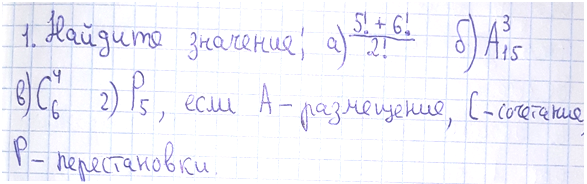 1. Найдите значение: а) (5! + 6!)/2! б) A₁₅³
в) C₆⁴ г) P₅, если А – размещение, С – сочетание,
Р – перестановки.